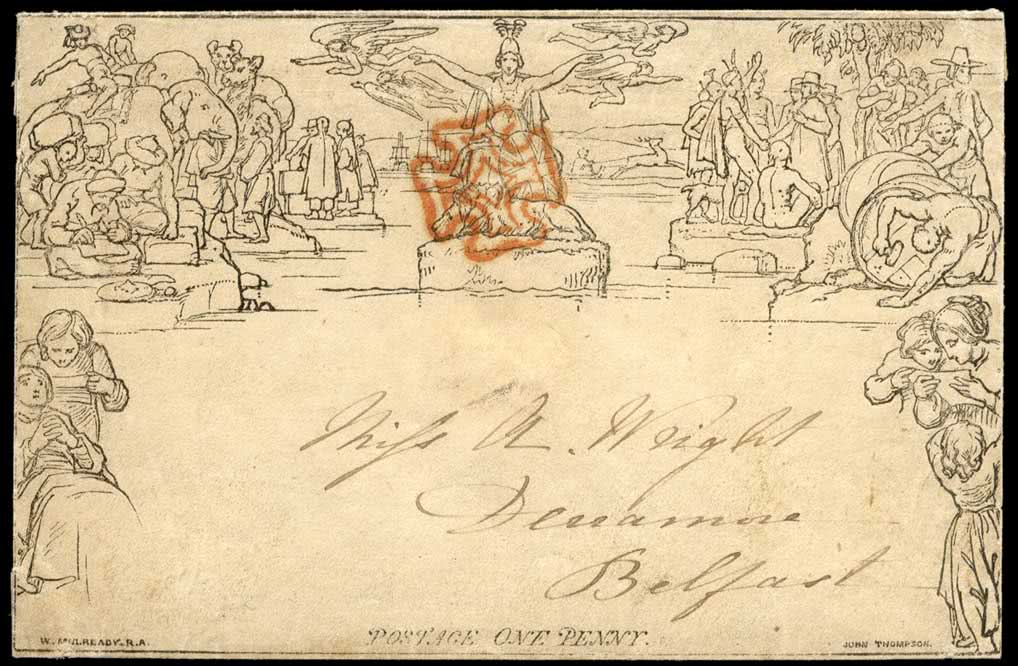 Miss A. Wright
Derramore
Belfast
POSTAGE ONE PENNY.
W. MULREADY. R.A.
JOHN THOMPSON.